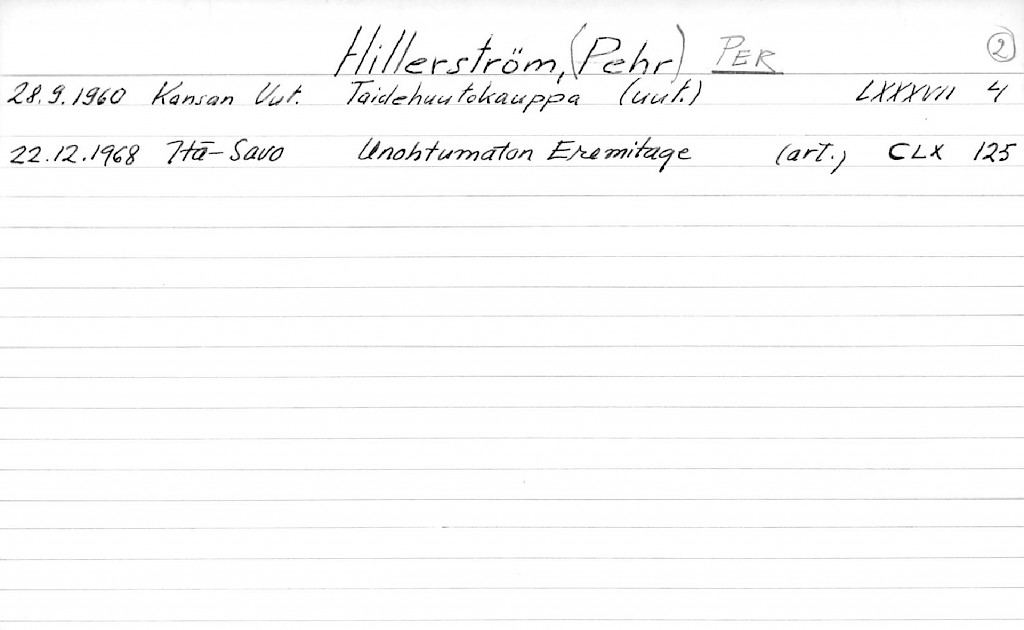 Hillerström, (Pehr) PER 2
28.9.1960 Kansan Uut. Taidehuutokauppa (uut.) LXXXVII 4
22.12.1968 Itä-Savo Unohtumaton Eremitage (art.) CLX 125